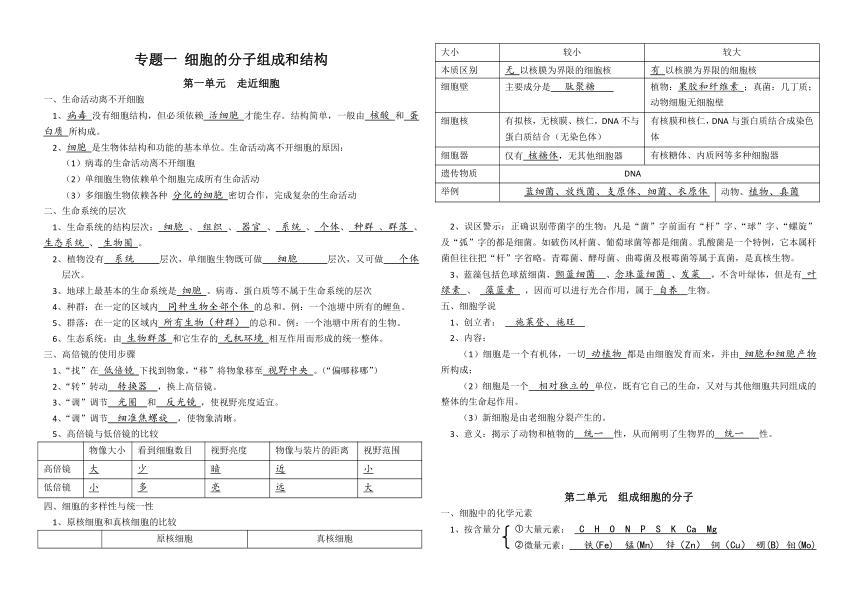 专题一 细胞的分子组成和结构
第一单元 走近细胞
一、生命活动离不开细胞
1、病毒 没有细胞结构，但必须依赖 活细胞 才能生存。结构简单，一般由 核酸 和 蛋
白质 所构成。
2、细胞 是生物体结构和功能的基本单位。生命活动离不开细胞的原因：
（1）病毒的生命活动离不开细胞
（2）单细胞生物依赖单个细胞完成所有生命活动
（3）多细胞生物依赖各种 分化的细胞 密切合作，完成复杂的生命活动
二、生命系统的层次
1、生命系统的结构层次：细胞 、组织 、器官 、系统 、个体、种群 、群落 、
生态系统 、生物圈 。
2、植物没有 系统 层次，单细胞生物既可做 细胞 层次，又可做 个体
层次。
3、地球上最基本的生命系统是 细胞 。病毒、蛋白质等不属于生命系统的层次
4、种群：在一定的区域内 同种生物全部个体 的总和。例：一个池塘中所有的鲤鱼。
5、群落：在一定的区域内 所有生物（种群） 的总和。例：一个池塘中所有的生物。
6、生态系统：由 生物群落 和它生存的 无机环境 相互作用而形成的统一整体。
三、高倍镜的使用步骤
1、“找”在 低倍镜 下找到物象。“移”将物象移至 视野中央 。（“偏哪移哪”）
2、“转”转动 转换器 ，换上高倍镜。
3、“调”调节 光圈 和 反光镜 ，使视野亮度适宜。
4、“调”调节 细准焦螺旋 ，使物象清晰。
5、高倍镜与低倍镜的比较
物像大小 看到细胞数目 视野亮度 物像与装片的距离 视野范围
高倍镜 大 少 暗 近 小
低倍镜 小 多 亮 远 大
四、细胞的多样性与统一性
1、原核细胞和真核细胞的比较
原核细胞 真核细胞
大小 较小 较大
本质区别 无 以核膜为界限的细胞核 有 以核膜为界限的细胞核
细胞壁 主要成分是 肽聚糖 植物：果胶和纤维素 ；真菌：几丁质；
动物细胞无细胞壁
细胞核 有拟核，无核膜、核仁，DNA 不与 有核膜和核仁，DNA 与蛋白质结合成染色
蛋白质结合（无染色体） 体
细胞器 仅有 核糖体，无其他细胞器 有核糖体、内质网等多种细胞器
遗传物质 DNA
举例 蓝细菌、放线菌、支原体、细菌、衣原体 动物、植物、真菌
2、误区警示：正确识别带菌字的生物：凡是“菌”字前面有“杆”字、“球”字、“螺旋”
及“弧”字的都是细菌。如破伤风杆菌、葡萄球菌等都是细菌。乳酸菌是一个特例，它本属杆
菌但往往把“杆”字省略。青霉菌、酵母菌、曲霉菌及根霉菌等属于真菌，是真核生物。
3、蓝藻包括色球蓝细菌、颤蓝细菌 、念珠蓝细菌 、发菜 。不含叶绿体，但是有 叶
绿素 、 藻蓝素 ，因而可以进行光合作用，属于 自养 生物。
五、细胞学说
1、创立者： 施莱登、施旺
2、内容：
（1）细胞是一个有机体，一切 动植物 都是由细胞发育而来，并由 细胞和细胞产物
所构成；
（2）细胞是一个 相对独立的 单位，既有它自己的生命，又对与其他细胞共同组成的
整体的生命起作用。
（3）新细胞是由老细胞分裂产生的。
3、意义：揭示了动物和植物的 统一 性，从而阐明了生物界的 统一 性。
第二单元 组成细胞的分子
一、细胞中的化学元素
1、按含量分 ①大量元素： C H O N P S K Ca Mg
②微量元素： 铁(Fe) 锰(Mn) 锌（Zn） 铜（Cu） 硼(B) 钼(Mo)